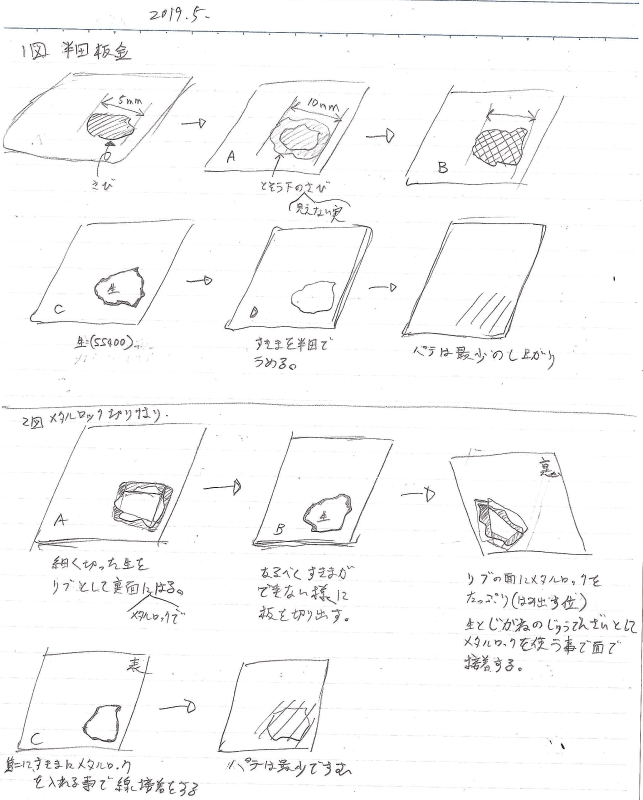 2019.5.
1図 半田板金
5mm
さび
10mm
A
とそう下のさび
見えない実
B
C
生
生=(SS400)
D
すきまを半田で
うめる。
パテは最少の仕上がり
2図 メタルロック
A
細く切った生を
リブとして裏面にはる。
メタルロックで
B
生
なるべくすきまが
できない様に
板を切り出す。
裏
リブの面にメタルロックを
たっぷり(はみ出す位)
生とじがねのじゅうてんざいとして
メタルロックを使う事で面で
接着する。
表
C
にすきまにメタルロック
を入れる事で線接着をする
パテは最少ですむ